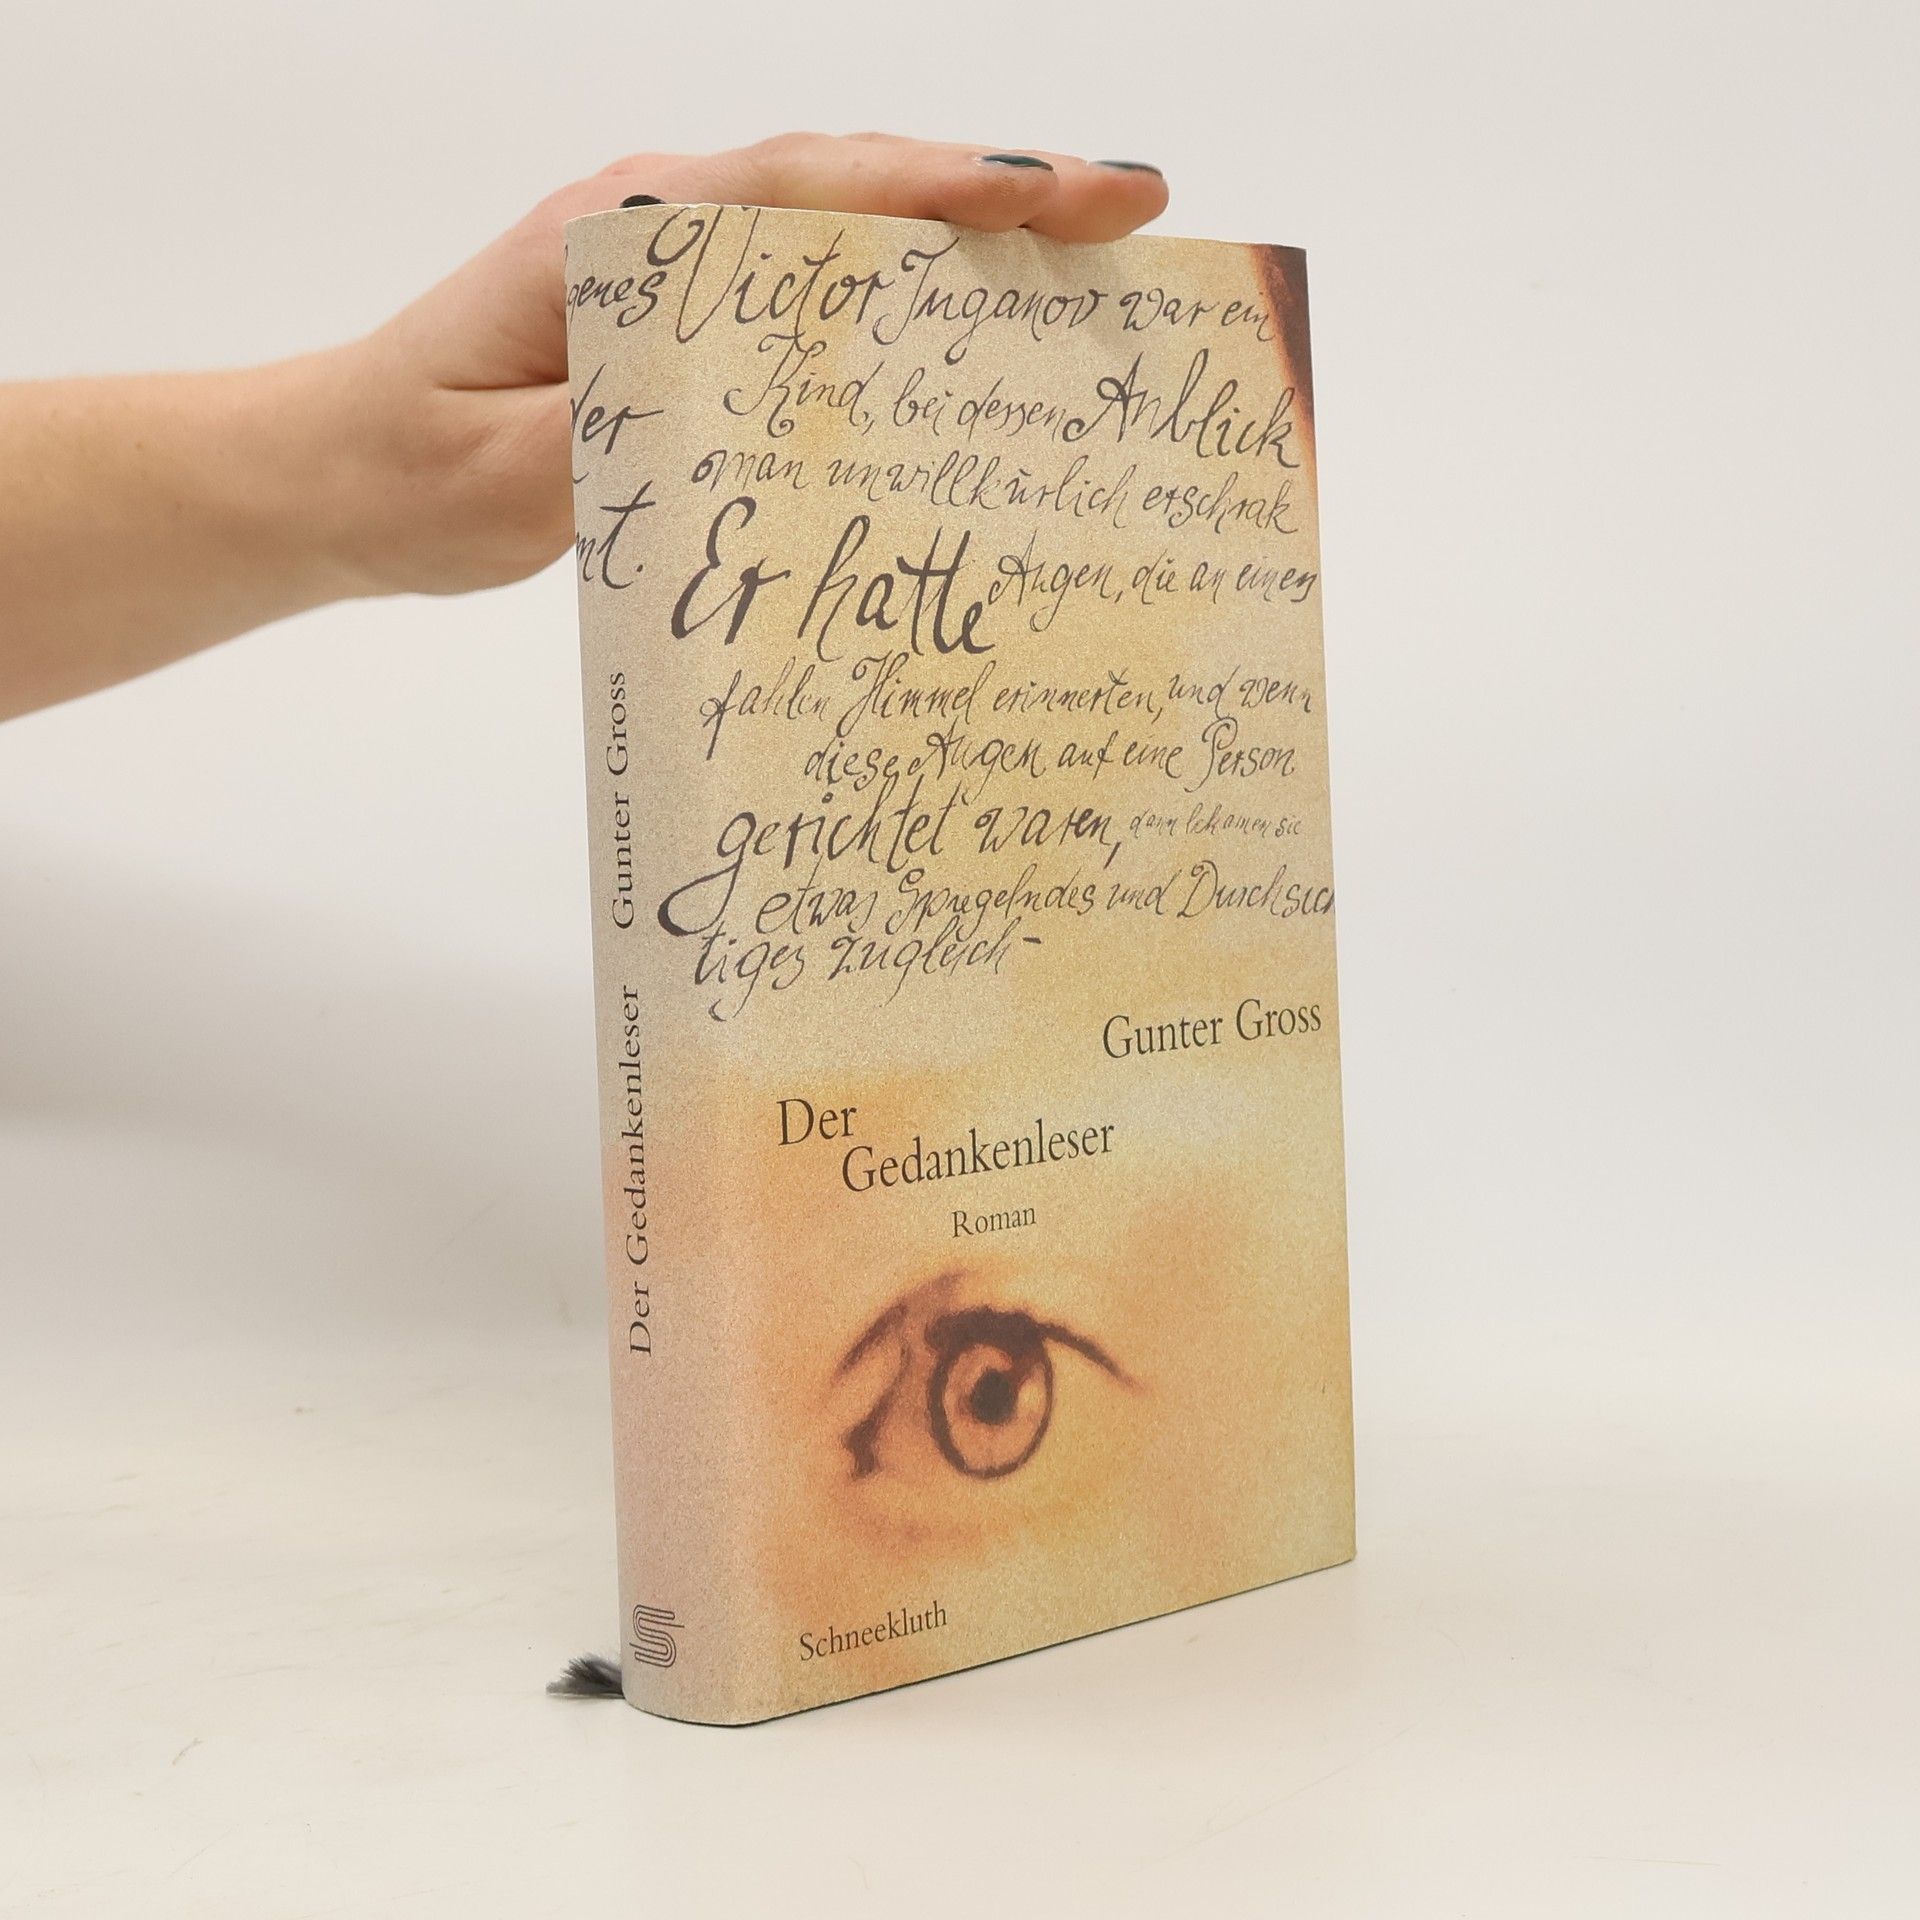 genes
der
nt.
Gunter Gross
Der Gedankenleser
Victor Juganov war ein
Kind, bei dessen Anblick
man unwillkürlich erschrak
Er hatte Augen, die an einen
fahlen Himmel erinnerten, und wenn
diese Augen auf eine Person
gerichtet waren, dann bekamen sie
etwas Spiegelndes und Durchsich
tiges zugleich-
Gunter Gross
Der
Gedankenleser
Roman
Schneekluth